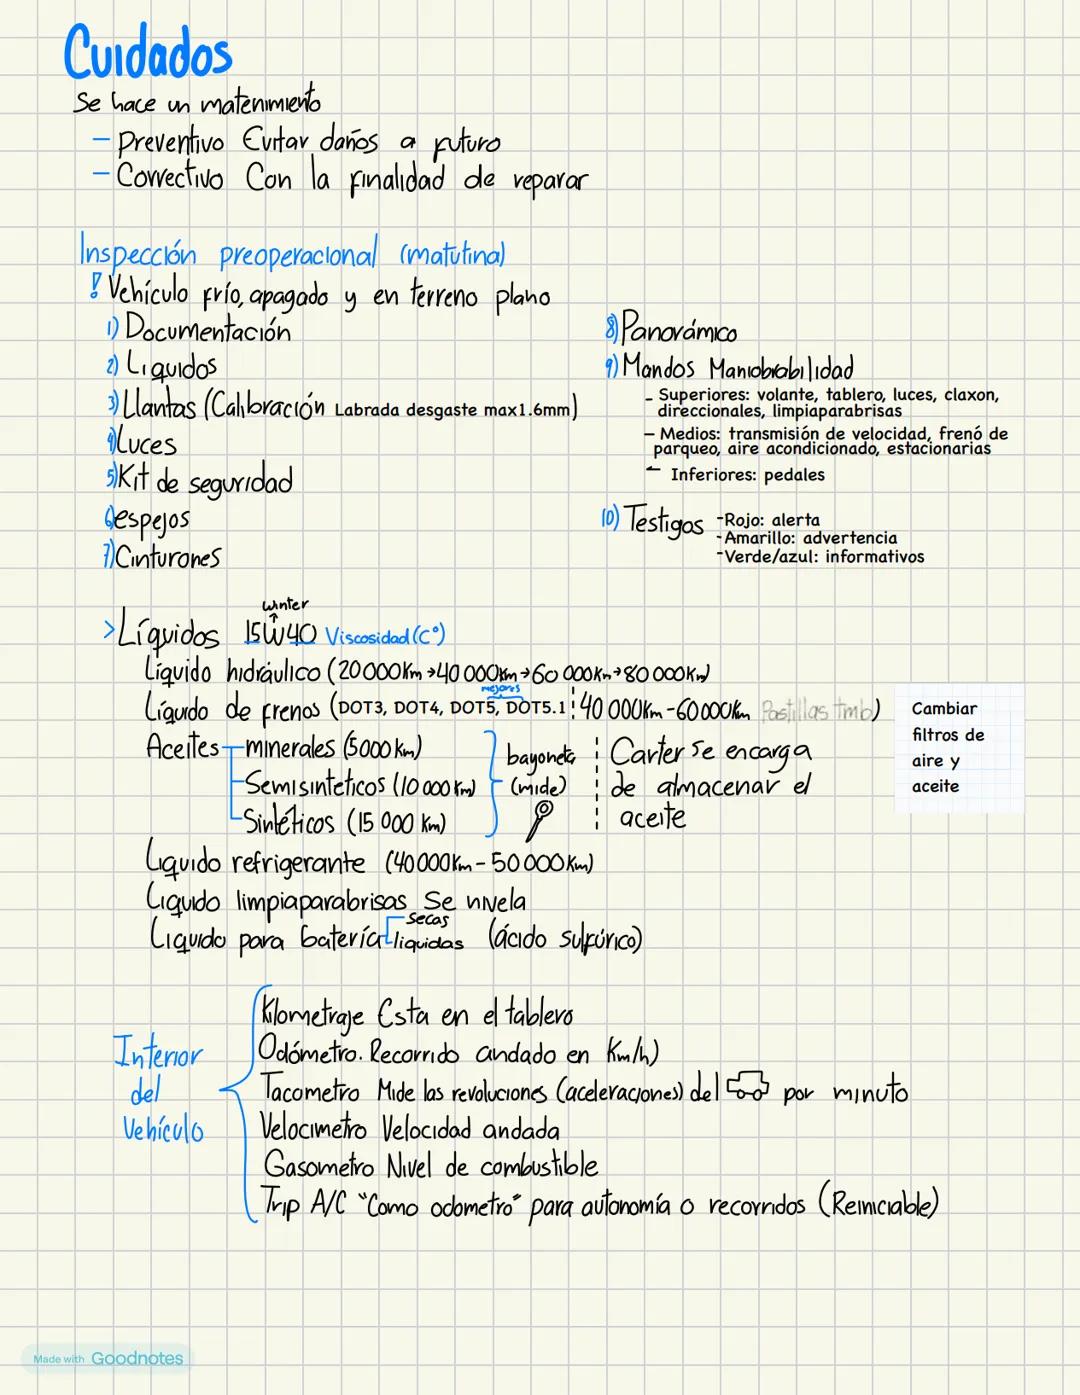 Cuidados
Se hace un matenimiento
- Preventivo Evitar daños a futuro
- Correctivo Con la finalidad de reparar
Inspección preoperacional (matutina)
! Vehículo frío, apagado y en terreno plano
1) Documentación
2) Liquidos
3) Llantas (Calibración Labrada desgaste max1.6mm)
4) Luces
5) Kit de seguridad
6) espejos
7) Cinturones
8) Panorámico
9) Mandos Maniobrabilidad
- Superiores: volante, tablero, luces, claxon,
direccionales, limpiaparabrisas
- Medios: transmisión de velocidad, frenó de
parqueo, aire acondicionado, estacionarias
- Inferiores: pedales
10) Testigos
-Rojo: alerta
-Amarillo: advertencia
-Verde/azul: informativos
winter
> Líquidos 15W40 Viscosidad (C°)
Líquido hidráulico (20000Km→40 000km→60 000Km→80 000Km)
mejores
Líquido de frenos (DOT3, DOT4, DOT5, DOT5.1 40 000Km-60000Km Pastillas tmb)
Aceites minerales (5000 Km)
Semisinteticos (10 000 Km)
Sintéticos (15 000 Km)
bayoneta
(mide)
Carter se encarga
de almacenar el
aceite
Cambiar
filtros de
aire y
aceite
Liquido refrigerante (40000Km - 50 000Km)
Liquido limpiaparabrisas Se nivela
Liquido para batería secas
liquidas (ácido sulfúrico)
Interior
del
Vehículo
Kilometraje Esta en el tablero
Odómetro. Recorrido andado en Km/h)
Tacometro Mide las revoluciones (aceleraciones) del por minuto
Velocimetro Velocidad andada
Gasometro Nivel de combustible
Trip A/C "Como odometro" para autonomía o recorridos (Reiniciable)
Made with Goodnotes